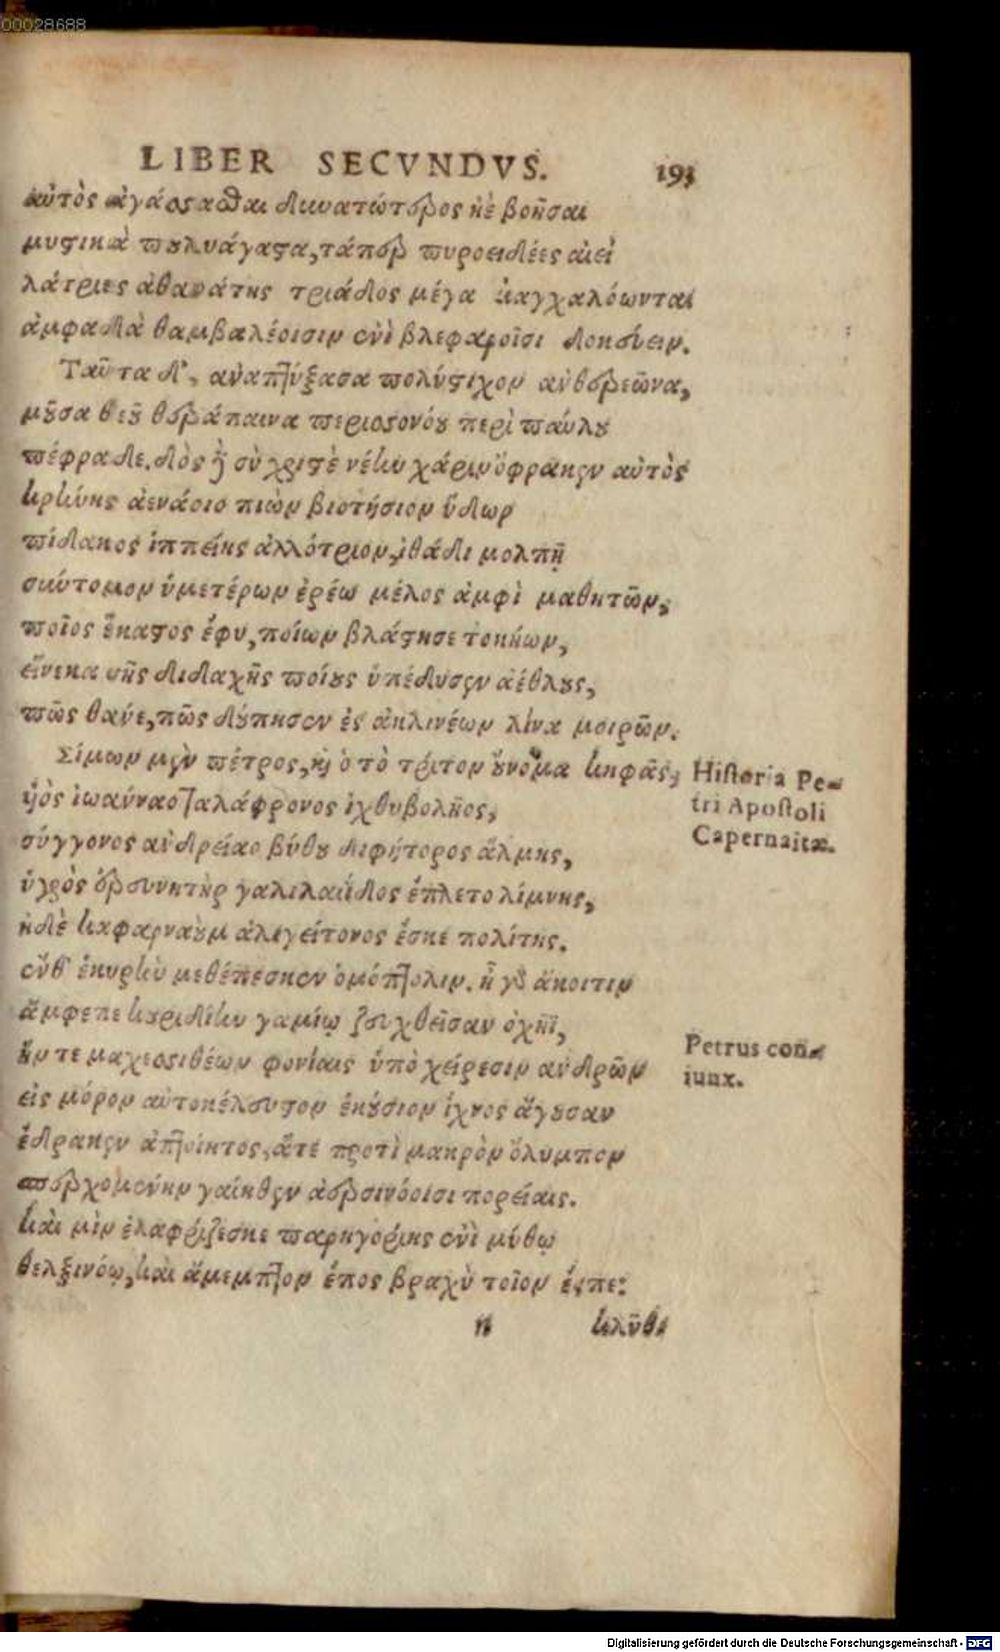 00028688
LIBER SECVNDVS. 193
αὐτὸς ἀγάσσασθαι δυνατώτερος ἠὲ βοῆσαι
μυστικὰ πουλυάγαστα, τάπερ πυροειδέες αἰεὶ
λάτριες ἀθανάτης τριάδος μέγα καγχαλόωνται
ἀμφαδὰ θαμβαλέοισιν ἐνὶ βλεφαροῖσι δοκεύειν.
Ταῦτα δ', ἀναπτύξασα πολύστιχον ἀνθερεῶνα,
μοῦσα θεοῦ θεράπαινα περιστονόου περὶ παύλου
πέφραδε. δὸς ἢ σὺ χριστὲ νέην χάριν, ὄφρα κεν αὐτὸς
κρήνης ἀενάοιο πιὼν βιοτήσιον ὕδωρ
πίδακος ἱππείης ἀλλότριον, ἰθάδι μολπῇ
σύντομον ὑμετέρων ἐρέω μέλος ἀμφὶ μαθητῶν,
ποῖος ἕκαστος ἔφυ, ποίων βλάστησε τοκήων,
εἵνεκα σῆς διδαχῆς ποίους ὑπέδυσεν ἀέθλους,
πῶς θάνε, πῶς δούπησεν ἐς ἀκλινέων λίνα μοιρῶν.
Σίμων μὲν πέτρος, καὶ ὁ τὸ τρίτον οὔνομα κηφᾶς,
υἱὸς ἰωάνναο ταλάφρονος ἰχθυβολῆος,
σύγγονος ἀνδρείαο βύθου διφήτορος ἅλμης,
ὑγρὸς ἐρευνητὴρ γαλιλαιΐδος ἔπλετο λίμνης,
ἠδὲ καφαρναοὺμ ἁλιγείτονος ἔσκε πολίτης.
ἔνθ' ἑκυρὴν μεθέπεσκεν ὁμόπτολιν. ἦ γὰρ ἄκοιτιν
ἄμφεπε κουριδίην γαμίῳ ζευχθεῖσαν ὀχῆϊ,
ἥν τε μαχεσιθέων φονίαις ὑπὸ χείρεσιν ἀνδρῶν
εἰς μόρον αὐτοκέλευστον ἑκούσιον ἴχνος ἄγουσαν
ἔδρακεν ἀπτοίητος, ἅτε προτὶ μακρὸν ὄλυμπον
ἀπερχομένην γαίηθεν ἀερσινόοισι πορείαις.
καὶ μὶν ἐλαφρίζεσκε παρηγορίης ἐνὶ μύθῳ
θελξινόῳ, καὶ ἄμεμπτον ἔπος βραχὺ τοῖον ἔειπε:
Historia Pe-
tri Apostoli
Capernaitæ.
Petrus con-
iunx.
n κλῦθι
Digitalisierung gefördert durch die Deutsche Forschungsgemeinschaft - DFG